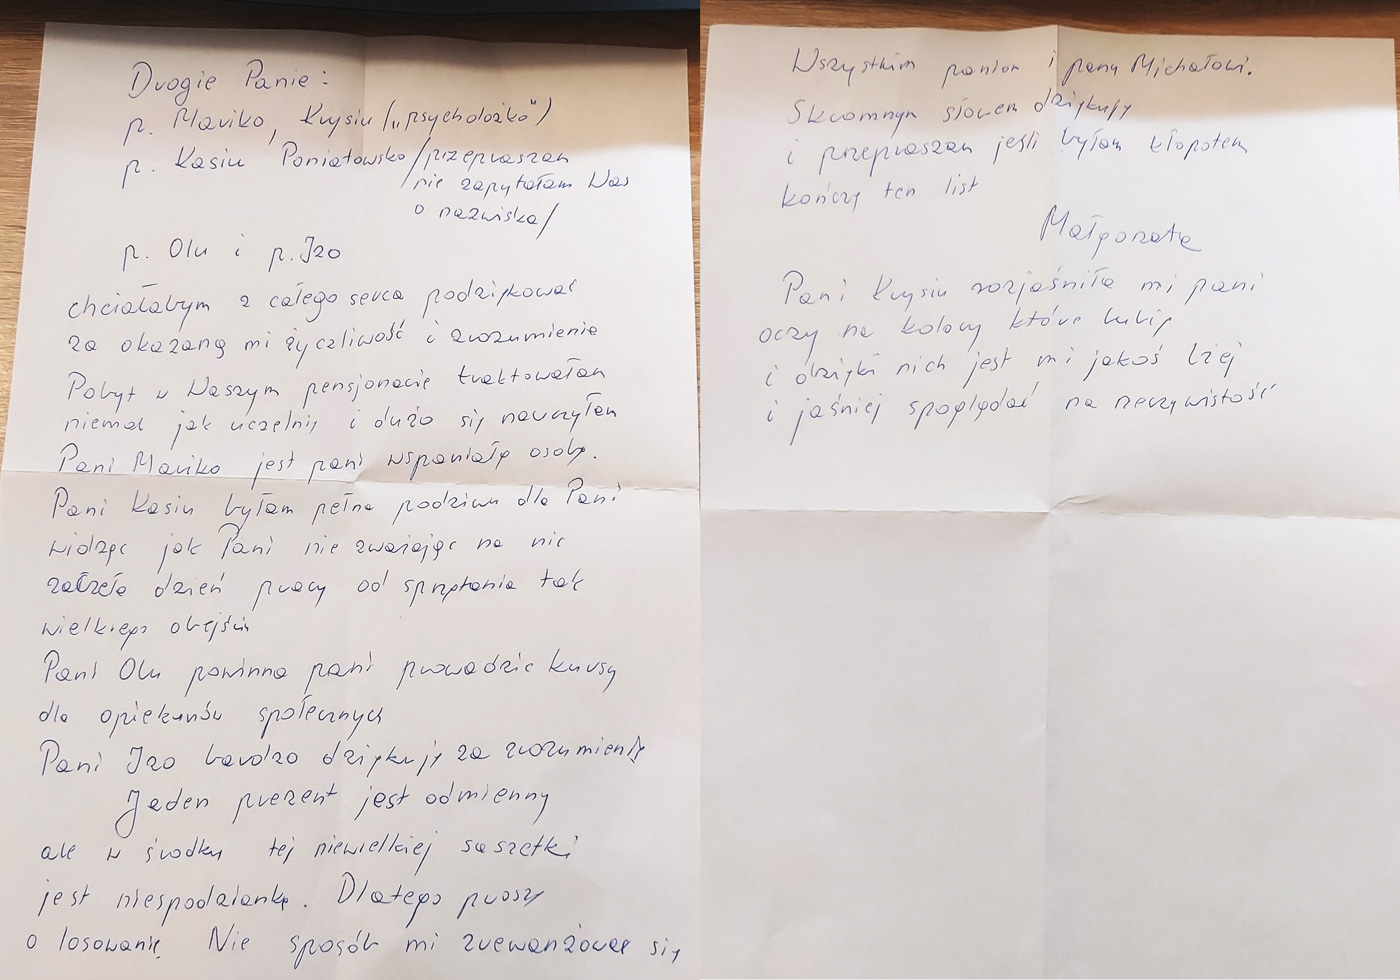 Drogie Panie:
p. Mariko, Krysiu („psycholożko")
p. Kasiu Poniatowsko /przepraszam
nie zapytałam Was
o nazwiska/
p. Olu i p. Izo
chciałabym z całego serca podziękować
za okazaną mi życzliwość i zrozumienie
Pobyt w Waszym pensjonacie traktowałam
niemal jak uczelnię i dużo się nauczyłam
Pani Mariko jest pani wspaniałą osobą.
Pani Kasiu byłam pełna podziwu dla Pani
widząc jak Pani nie zważając na nic
zaczęła dzień pracy od sprzątania tak
wielkiego obejścia
Pani Olu powinna pani prowadzić kursy
dla opiekunów społecznych
Pani Izo bardzo dziękuję za zrozumienie
Jeden prezent jest odmienny
ale w środku tej niewielkiej saszetki
jest niespodzianka. Dlatego proszę
o losowanie. Nie sposób mi zrewanżować się
Wszystkim paniom i panu Michałowi.
Skromnym słowem dziękuję
i przepraszam jeśli byłam kłopotem
kończę ten list
Małgorzata
Pani Krysiu rozjaśniła mi pani
oczy na kolory które lubię
i dzięki nich jest mi jakoś lżej
i jaśniej spoglądać na rzeczywistość